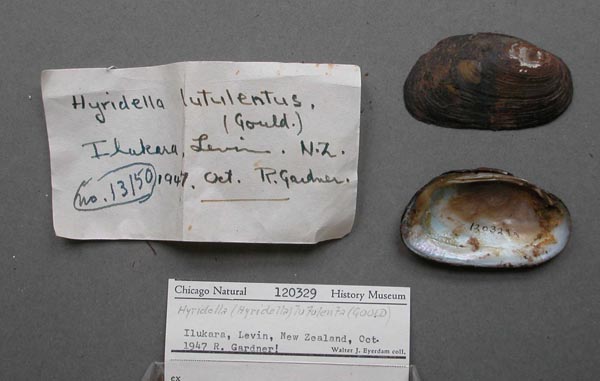 Hyridella lutulentus.
(Gould.)
Ilukara, Levin. N.Z.
no. 13150, 1947, Oct. R. Gardner.
Chicago Natural 120329 History Museum
Hyridella (Hyridella) lutulenta (GOULD)
Ilukara, Levin, New Zealand, Oct.
1947 R. Gardner!
Walter J. Eyerdam coll.
ex